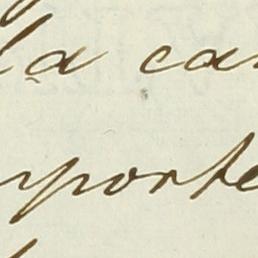 la car
mporte